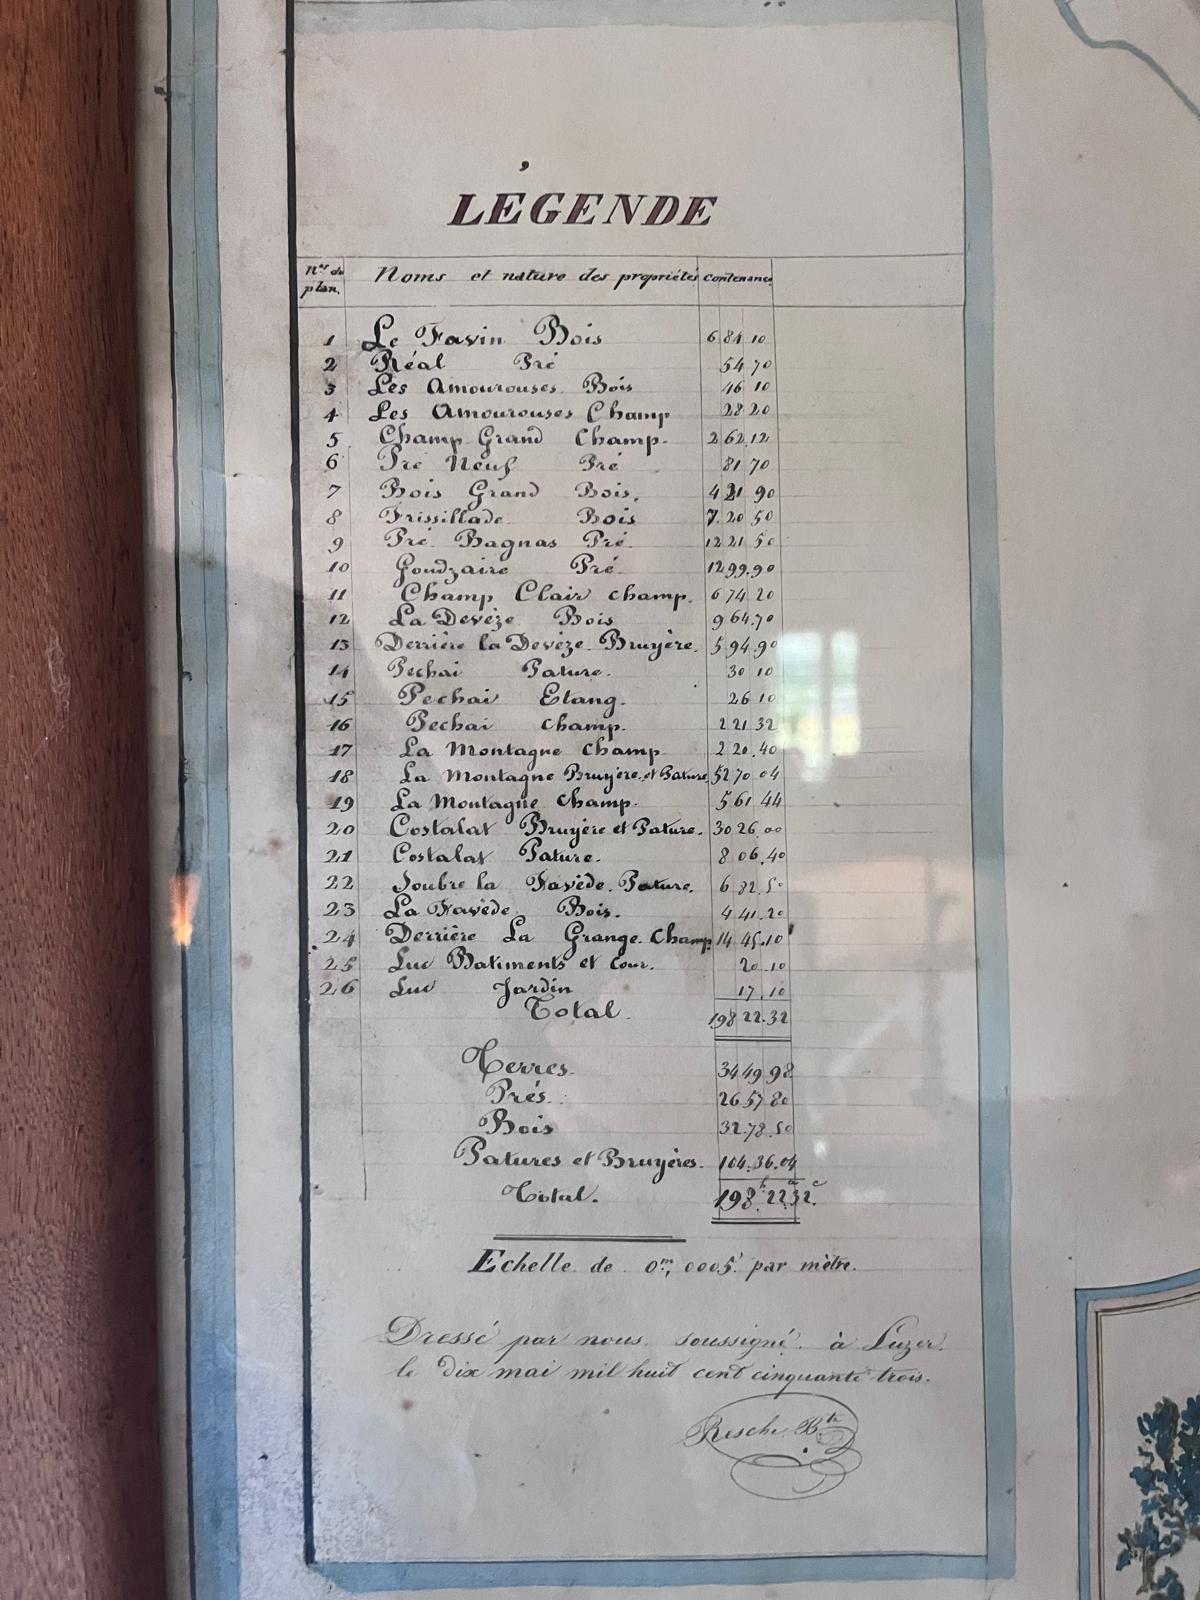 LÉGENDE
Nos du plan. Noms et nature des propriétés contenance
1 Le Favin Bois 6 84 10
2 Réal Pré 54 70
3 Les Amourouses Bois 46 10
4 Les Amourouses Champ 28 20
5 Champ Grand Champ. 2 62 12
6 Pré Neuf Pré 81 70
7 Bois Grand Bois. 4 21 90
8 Frissillade Bois 7. 20 50
9 Pré Bagnas Pré. 12 21 50
10 Goudzaire Pré. 12 99. 90
11 Champ Clair champ. 6 74 20
12 La Devèze Bois 9 64. 70
13 Derrière la Devèze. Bruyère. 5 94. 90
14 Pechai Pature. 30 10
15 Pechai Etang. 26 10
16 Pechai champ. 2 21 32
17 La Montagne champ 2 20. 40
18 La Montagne Bruyère et Pature 52 70 04
19 La Montagne champ. 5 61 44
20 Costalat Bruyère et Pature. 30 26. 00
21 Costalat Pature. 8 06. 40
22 Soubre la Favède. Pature. 6 82. 50
23 La Favède Bois. 4 41. 20
24 Derrière La Grange. champ 14 45. 10
25 Luc Batiments et cour. 20. 10
26 Luc Jardin 17. 10
Total. 198 22. 32
Terres. 34 49 98
Prés. 26 57 80
Bois 32. 78. 50
Patures et Bruyères. 104. 36. 04
Total. 198.h 22a 32.c
Echelle de 0m, 0005 par mètre.
Dressé par nous soussigné. à Luzer.
le dix mai mil huit cent cinquante trois.
Resche Bte